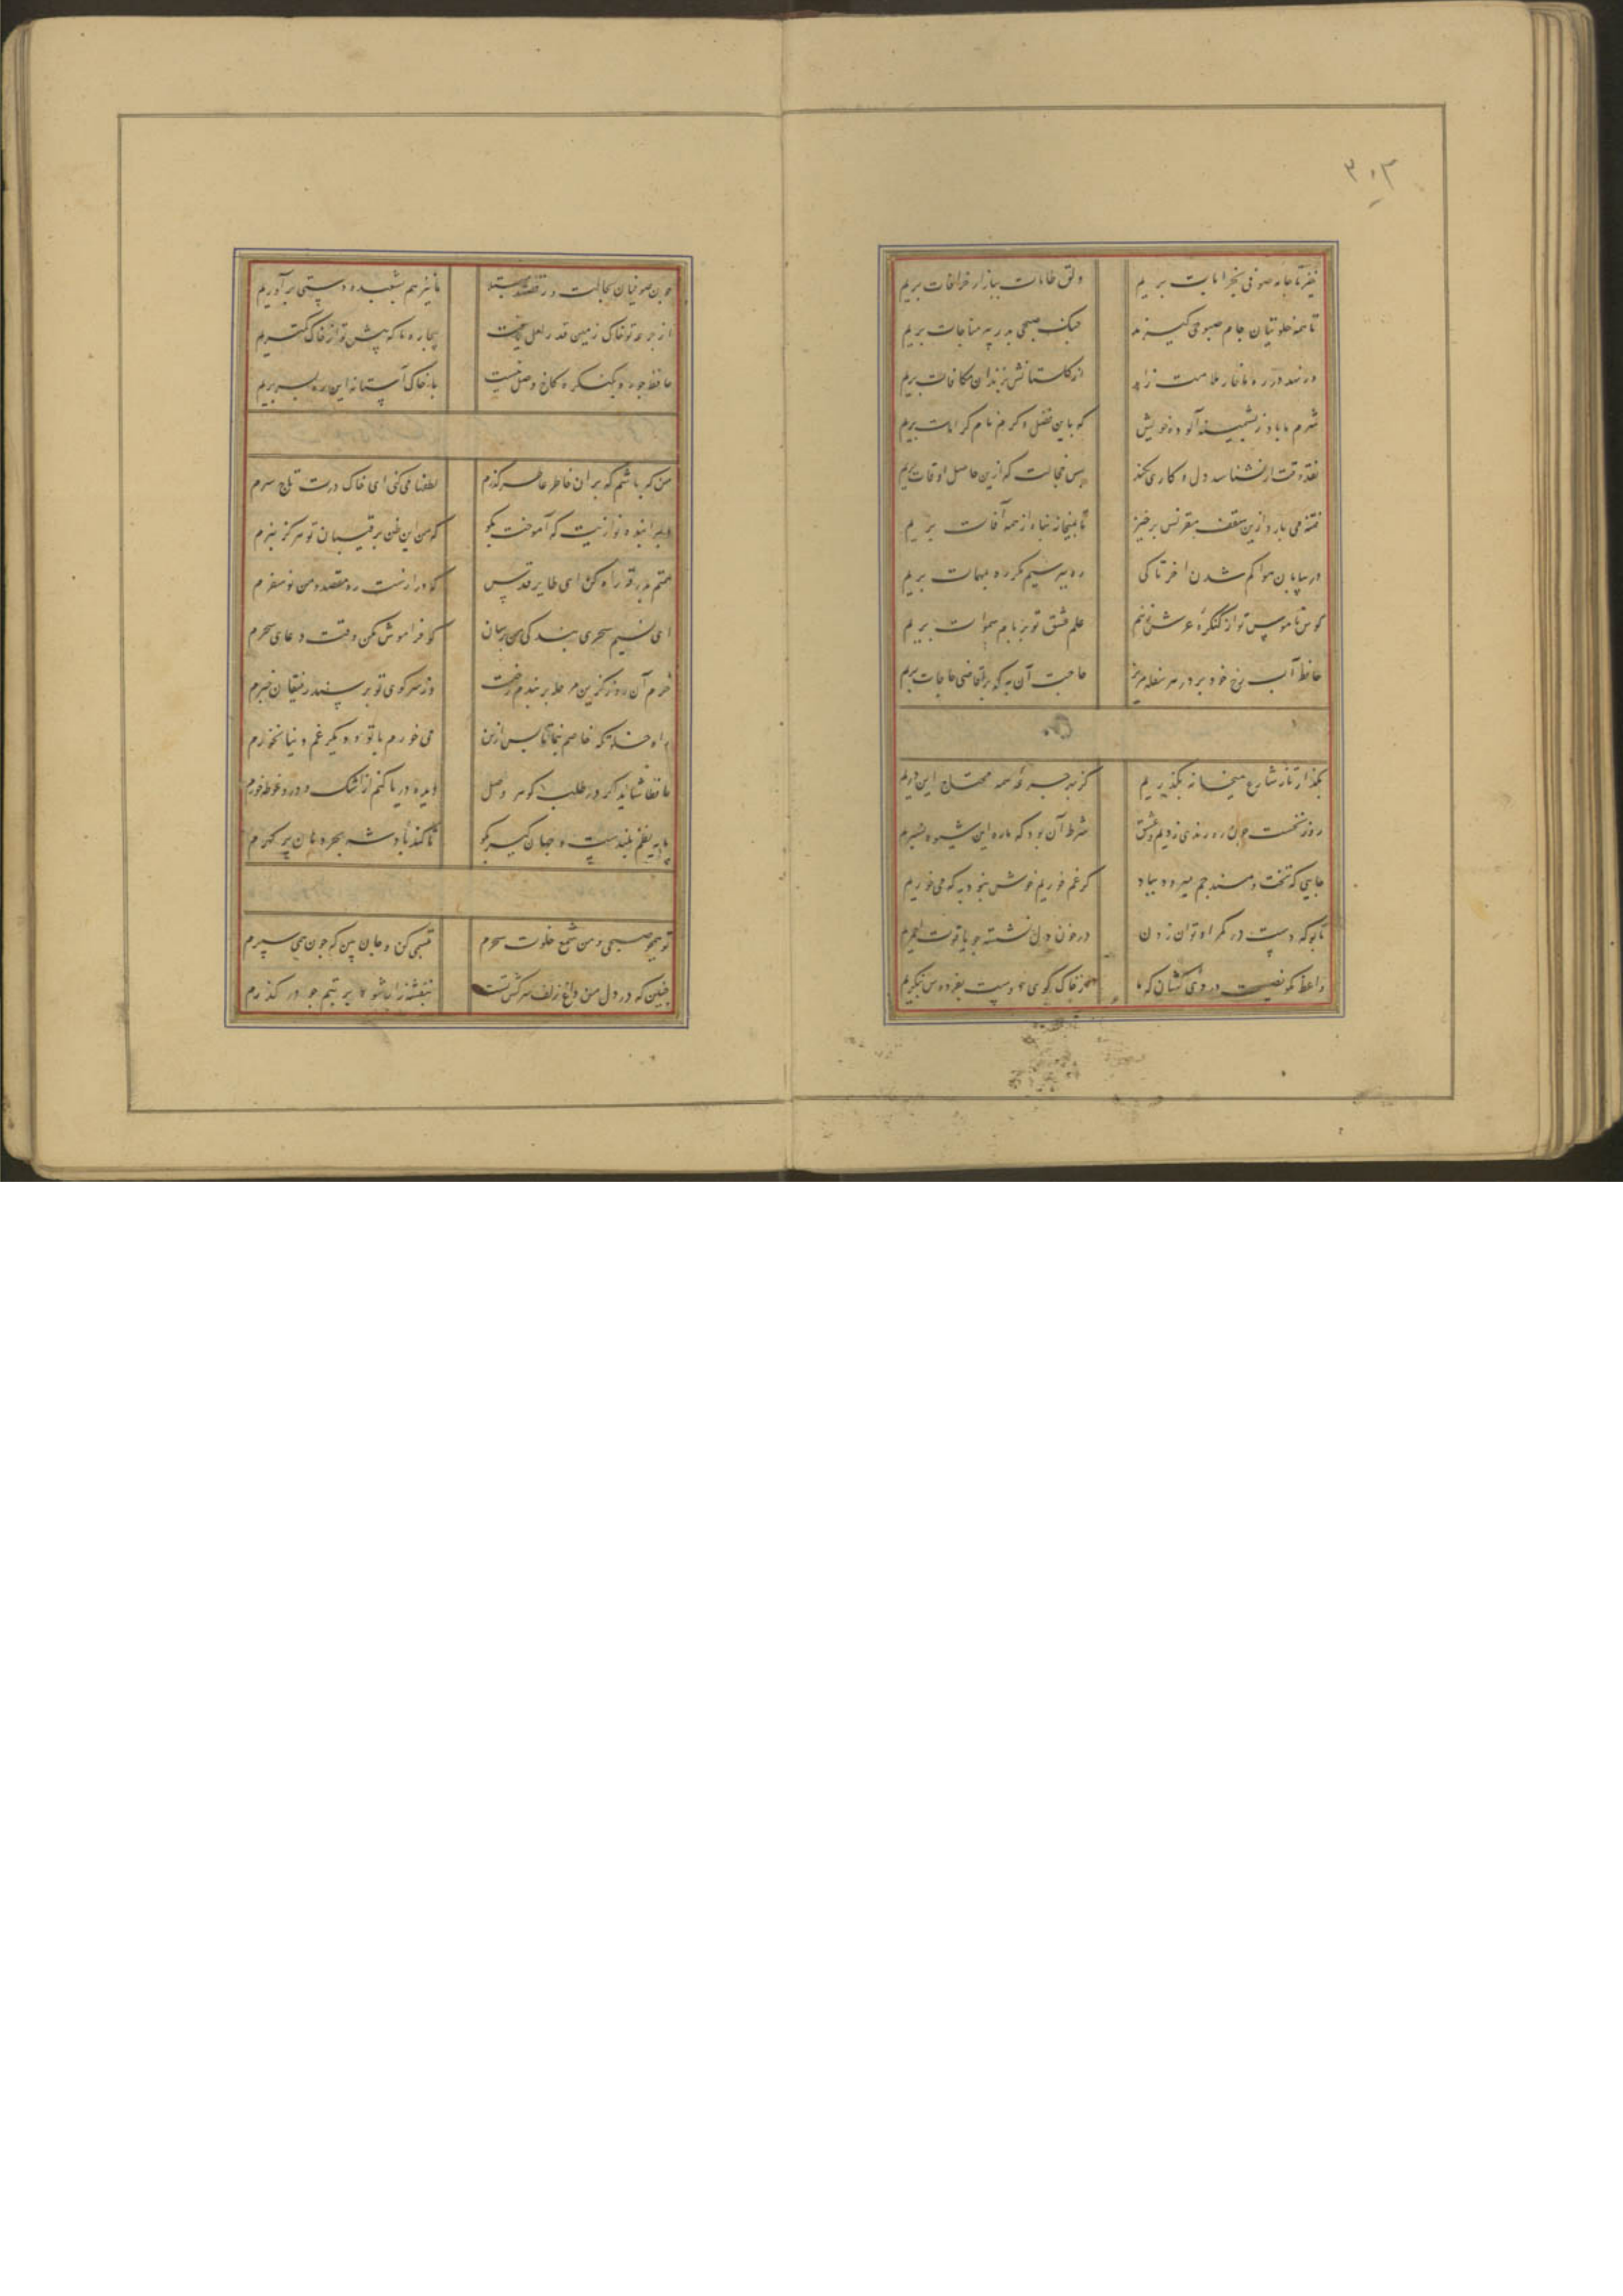 ۳۰۲
خیز تا جامه صوفی بخرابات بریم
دلق طامات ببازار خرافات بریم
تا همه خلوتیان جام صبوحی گیرند
چنگ صبحی بدر پیر مناجات بریم
ور نهد در ره ما خار ملامت زاهد
از گلستانش بزندان مکافات بریم
شرم ما باد ز پشمینه آلوده خویش
که باین فضل و کرم نام کرامات بریم
قدر وقت ار نشناسد دل و کاری نکند
بس خجالت که ازین حاصل اوقات بریم
فتنه می بارد ازین سقف مقرنس برخیز
تا بمیخانه پناه از همه آفات بریم
در بیابان هوا گم شدن آخر تا کی
ره بپرسیم مگر ره بمهمات بریم
کوس ناموس تو از کنگره عرش زنیم
علم عشق تو بر بام سموات بریم
حافظ آب رخ خود بر در هر سفله مریز
حاجت آن به که بر قاضی حاجات بریم
بگذار تا ز شارع میخانه بگذریم
کز بهر جرعه همه محتاج این دریم
روز نخست چون دم رندی زدیم و عشق
شرط آن بود که ما ره این شیوه نسپریم
جایی که تخت و مسند جم میرود بباد
گر غم خوریم خوش نبود به که می خوریم
تا بو که دست در کمر او توان زدن
در خون دل نشسته چو یاقوت احمریم
واعظ مکن نصیحت دردی کشان که ما
با خاک کوی دوست بفردوس ننگریم
چون صوفیان بحالت و رقصند
ما نیز هم بشعبده دستی برآوریم
از جرعه تو خاک زمین قدر لعل یافت
بیچاره ما که پیش تو از خاک کمتریم
حافظ چو ره بکنگره کاخ وصل نیست
با خاک آستانه این در بسر بریم
من که باشم که بر آن خاطر عاطر گذرم
لطفها می کنی ای خاک درت تاج سرم
دلبرا بنده نوازیت که آموخت بگو
که من این ظن برقیبان تو هرگز نبرم
همتم بدرقه راه کن ای طایر قدس
که درازست ره مقصد و من نوسفرم
ای نسیم سحری بندگی من برسان
که فراموش مکن وقت دعای سحرم
خرم آن روز کزین مرحله بربندم رخت
وز سر کوی تو پرسند رفیقان خبرم
راه خلوتگه خاصم بنما تا پس ازین
می خورم با تو و دیگر غم دنیا نخورم
حافظا شاید اگر در طلب گوهر وصل
دیده دریا کنم از اشک و درو غوطه خورم
پایه نظم بلندست و جهان گیر بگو
تا کند پادشه بحر دهان پر گهرم
تو همچو صبحی و من شمع خلوت سحرم
تبسمی کن و جان بین که چون همی سپرم
چنین که در دل من داغ زلف سرکش تست
بنفشه زار شود تربتم چو در گذرم